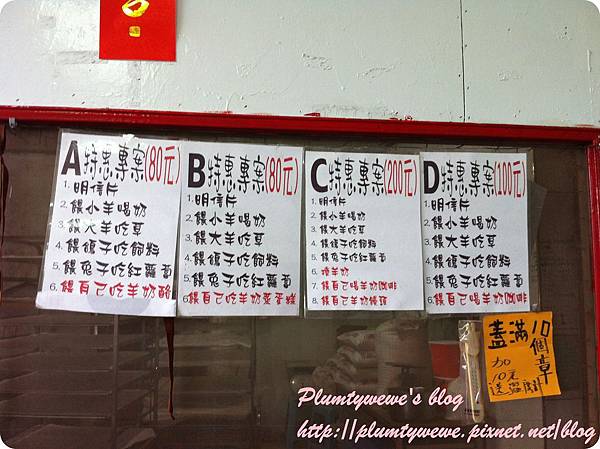 A特惠專案(80元)
1. 明信片
2. 餵小羊喝奶
3. 餵大羊吃草
4. 餵鴕子吃飼料
5. 餵兔子吃紅蘿蔔
6. 餵自己吃羊奶酪
B特惠專案(80元)
1. 明信片
2. 餵小羊喝奶
3. 餵大羊吃草
4. 餵鴕子吃飼料
5. 餵兔子吃紅蘿蔔
6. 餵自己吃羊奶蛋糕
C特惠專案(200元)
1. 明信片
2. 餵小羊喝奶
3. 餵大羊吃草
4. 餵鴕子吃飼料
5. 餵兔子吃紅蘿蔔
6. 擠羊奶
7. 餵自己喝羊奶咖啡
8. 餵自己羊奶饅頭
D特惠專案(100元)
1. 明信片
2. 餵小羊喝奶
3. 餵大羊吃草
4. 餵鴕子吃飼料
5. 餵兔子吃紅蘿蔔
6. 餵自己喝羊奶咖啡
蓋滿10個章
加
10元
送
Plumtywewe's blog
http://plumtywewe.pixnet.net/blog